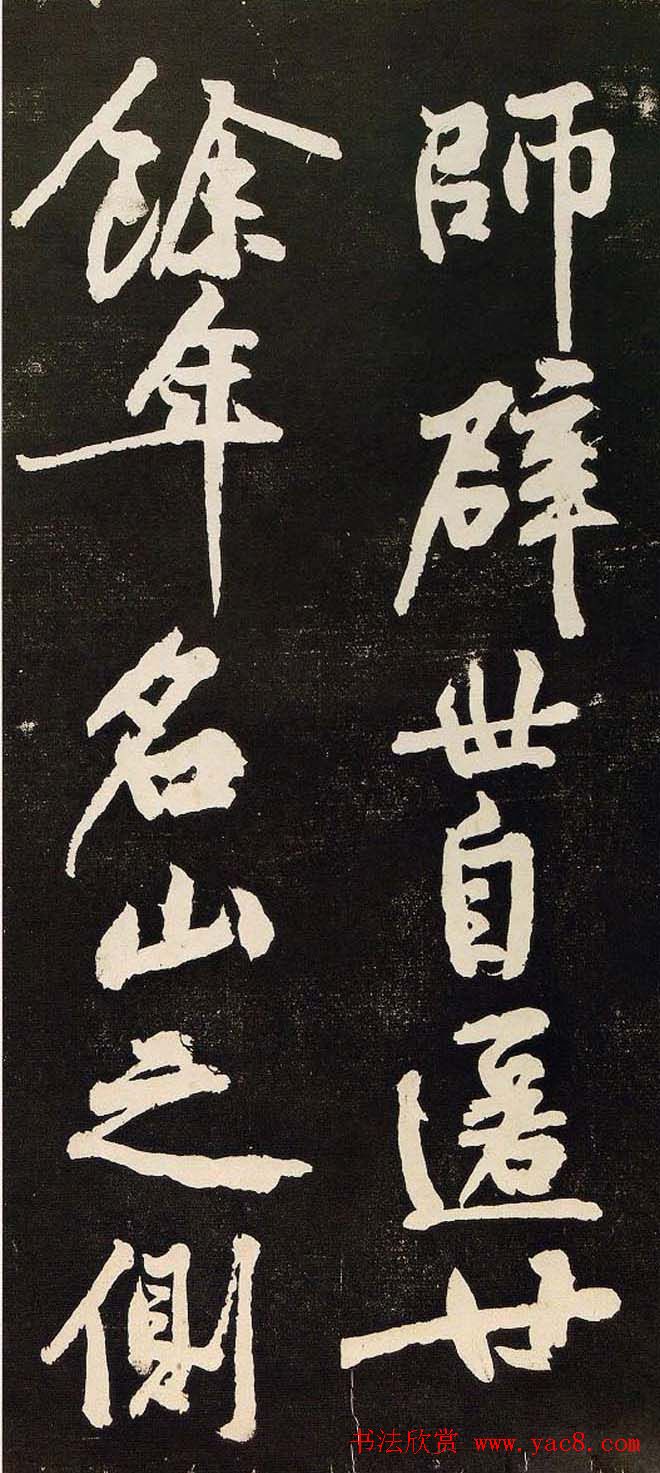 師辟世自遁廿
餘年名山之側
书法欣赏 www.yac8.com